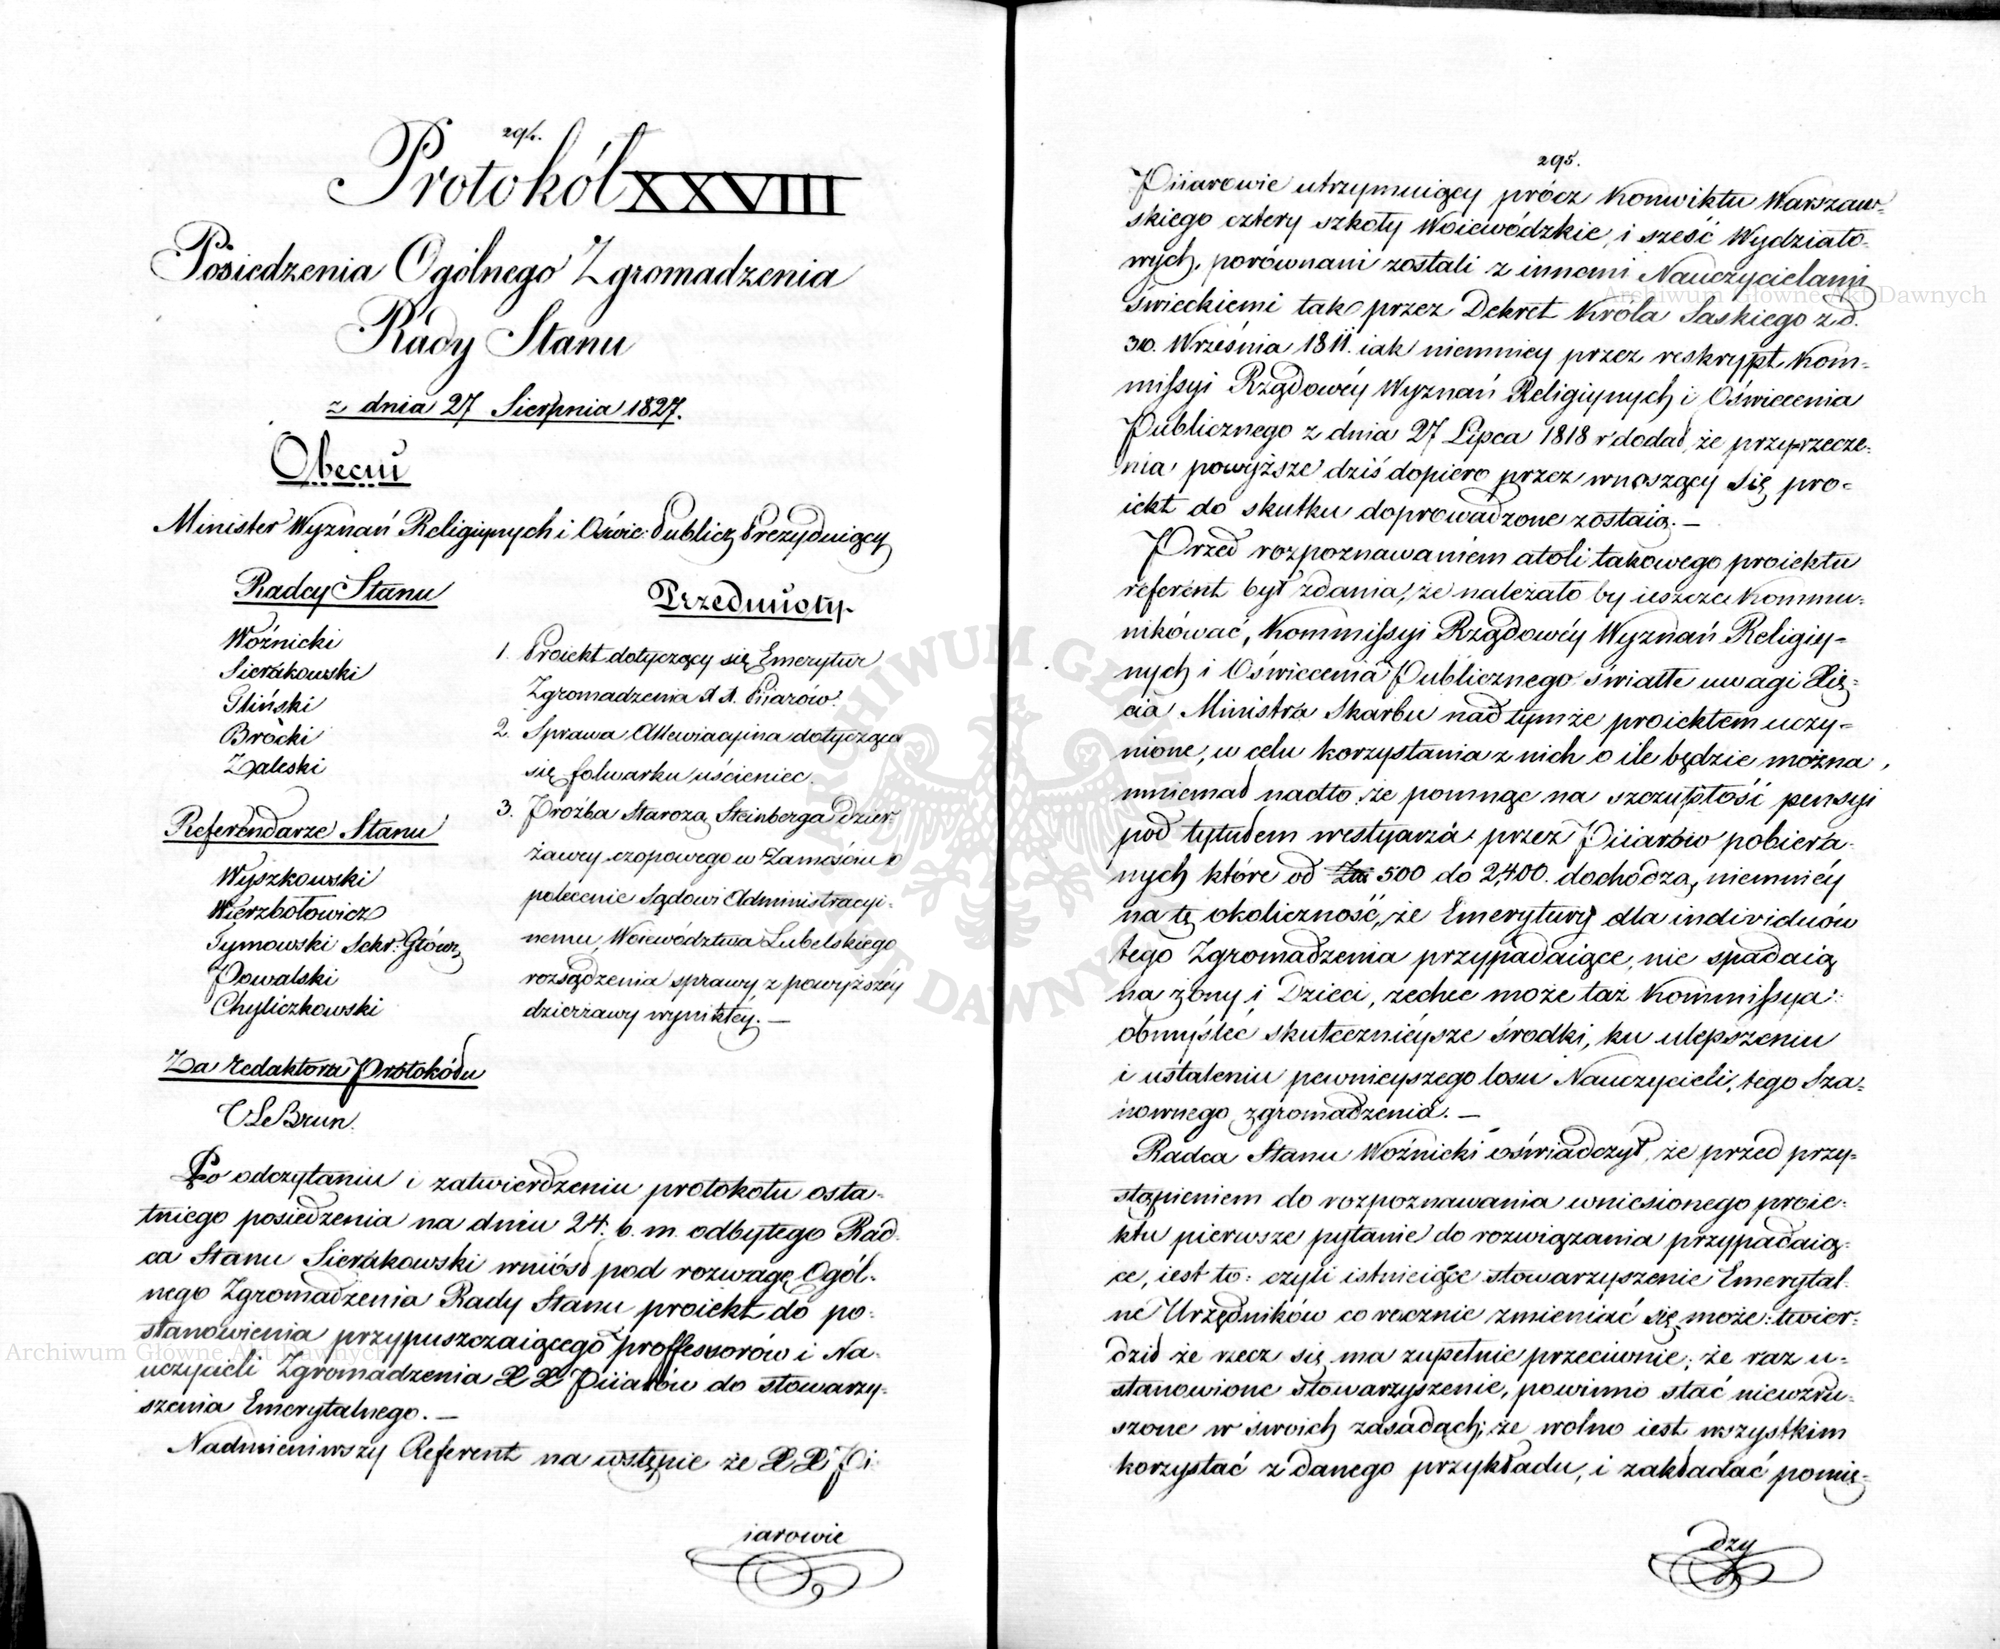 294.
Protokół XXVIII
Posiedzenia Ogólnego Zgromadzenia
Rady Stanu
z dnia 27 Sierpnia 1827.
Obecni
Minister Wyznań Religiynych i Oświe: Publicz Prezyduiący
Radcy Stanu
Woźnicki
Sierakowski
Gliński
Brocki
Zaleski
Referendarze Stanu
Wyszkowski
Wierzbołowicz
Tymowski Sekr: Główn
Powalski
Chyliczkowski
Za Redaktora Protokółu
C LeBrun.
Przedmioty
1. Proiekt dotyczący się Emerytur
Zgromadzenia XX. Piiarów.
2. Sprawa Attewiacyina dotycząca
się folwarku uścieniec.
3. Proźba Staroza. Steinberga dzier-
żawcy czopowego w Zamościu o
polecenie Sądowi Administracyi-
nemu Woiewództwa Lubelskiego
rozsądzenia sprawy z powyższéy
dzierżawy wynikłey. —
Po odczytaniu i zatwierdzeniu protokołu osta-
tniego posiedzenia na dniu 24. b. m. odbytego Rad-
ca Stanu Sierakowski wniósł pod rozwagę Ogól-
nego Zgromadzenia Rady Stanu proiekt do po-
stanowienia przypuszczaiącego proffessorów i Na-
uczycieli Zgromadzenia XX Piiarów do stowarzy-
szenia Emerytalnego. —
Nadmieniwszy Referent na wstępie że XX Pi-
iarowie
295.
Piiarowie utrzymuiący prócz Konwiktu Warszaw-
skiego cztery szkoły Woiewódzkie, i sześć Wydziało-
wych, porównani zostali z innemi Nauczycielami
świeckiemi tak przez Dekret Króla Saskiego z d.
30. Września 1811. iak niemniey przez reskrypt Kom-
missyi Rządowéy Wyznań Religiynych i Oświecenia
Publicznego z dnia 27 Lipca 1818 r dodał, że przyrzecze-
nia powyższe dziś dopiero przez wnoszący się pro-
iekt do skutku doprowadzone zostaią. —
Przed rozpoznawaniem atoli takowego proiektu
referent był zdania, że należało by ieszcze Kommu-
nikować, Kommissyi Rządowéy Wyznań Religiy-
nych i Oświecenia Publicznego światłe uwagi Xię-
cia Ministra Skarbu nad tymże proiektem uczy-
nione, w celu korzystania z nich o ile będzie można,
mniemał nadto że pomnąc na szczupłość pensyi
pod tytułem westyarza przez Piiarów pobiera-
nych które od Zł: 500 do 2,400. dochodzą, niemniéy
na tę okoliczność, że Emerytury dla individuów
tego Zgromadzenia przypadaiące, nie spadaią
na żony i Dzieci, zechce może taż Kommissya
obmyśleć skutecznieysze środki, ku ulepszeniu
i ustaleniu pewnieyszego losu Nauczycieli, tego Sza-
nownego zgromadzenia. —
Radca Stanu Woźnicki oświadczył, że przed przy-
stąpieniem do rozpoznawania wniesionego proie-
ktu pierwsze pytanie do rozwiązania przypadaią-
ce, iest to: czyli istnieiące stowarzyszenie Emerytal-
ne Urzędników co rocznie zmieniać się może: twier-
dził że rzecz się ma zupełnie przeciwnie; że raz u-
stanowione stowarzyszenie, powinno stać niewzru-
szone w swoich zasadach; że wolno iest wszystkim
korzystać z danego przykładu, i zakładać pomię-
dzy
Archiwum Główne Akt Dawnych
Archiwum Główne Akt Dawnych
ARCHIWUM GŁÓWNE AKT DAWNYCH